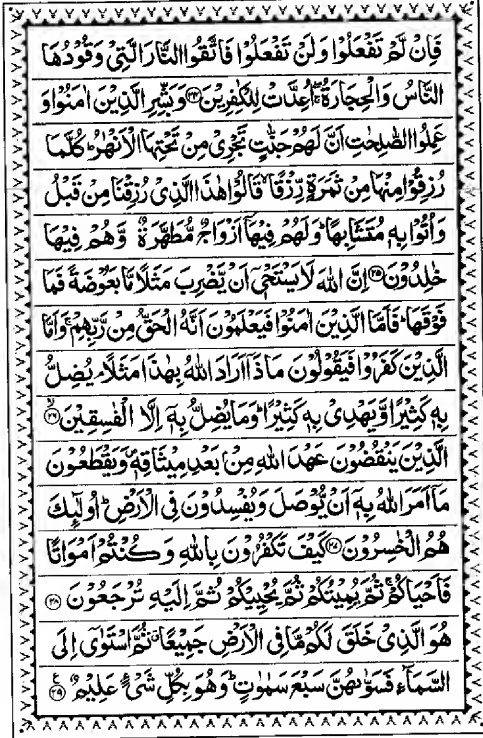 فَاِنْ لَّمْ تَفْعَلُوْا وَلَنْ تَفْعَلُوْا فَاتَّقُوا النَّارَ الَّتِیْ وَقُوْدُهَا
النَّاسُ وَالْحِجَارَةُ ۖۚ اُعِدَّتْ لِلْكٰفِرِیْنَ ﴿۲۴﴾ وَبَشِّرِ الَّذِیْنَ اٰمَنُوْا وَ
عَمِلُوا الصّٰلِحٰتِ اَنَّ لَهُمْ جَنّٰتٍ تَجْرِیْ مِنْ تَحْتِهَا الْاَنْهٰرُ ؕ كُلَّمَا
رُزِقُوْا مِنْهَا مِنْ ثَمَرَةٍ رِّزْقًا ۙ قَالُوْا هٰذَا الَّذِیْ رُزِقْنَا مِنْ قَبْلُ
وَاُتُوْا بِهٖ مُتَشَابِهًا ؕ وَلَهُمْ فِیْهَاۤ اَزْوَاجٌ مُّطَهَّرَةٌ وَّهُمْ فِیْهَا
خٰلِدُوْنَ ﴿۲۵﴾ اِنَّ اللّٰهَ لَا یَسْتَحْیٖۤ اَنْ یَّضْرِبَ مَثَلًا مَّا بَعُوْضَةً فَمَا
فَوْقَهَا ؕ فَاَمَّا الَّذِیْنَ اٰمَنُوْا فَیَعْلَمُوْنَ اَنَّهُ الْحَقُّ مِنْ رَّبِّهِمْ ۚ وَاَمَّا
الَّذِیْنَ كَفَرُوْا فَیَقُوْلُوْنَ مَاذَاۤ اَرَادَ اللّٰهُ بِهٰذَا مَثَلًا ۘ یُضِلُّ
بِهٖ كَثِیْرًا وَّیَهْدِیْ بِهٖ كَثِیْرًا ؕ وَمَا یُضِلُّ بِهٖۤ اِلَّا الْفٰسِقِیْنَ ﴿۲۶﴾ ۙ
الَّذِیْنَ یَنْقُضُوْنَ عَهْدَ اللّٰهِ مِنْۢ بَعْدِ مِیْثَاقِهٖ ۪ وَیَقْطَعُوْنَ
مَاۤ اَمَرَ اللّٰهُ بِهٖۤ اَنْ یُّوْصَلَ وَیُفْسِدُوْنَ فِی الْاَرْضِ ؕ اُولٰٓئِكَ
هُمُ الْخٰسِرُوْنَ ﴿۲۷﴾ كَیْفَ تَكْفُرُوْنَ بِاللّٰهِ وَكُنْتُمْ اَمْوَاتًا
فَاَحْیَاكُمْ ۚ ثُمَّ یُمِیْتُكُمْ ثُمَّ یُحْیِیْكُمْ ثُمَّ اِلَیْهِ تُرْجَعُوْنَ ﴿۲۸﴾
هُوَ الَّذِیْ خَلَقَ لَكُمْ مَّا فِی الْاَرْضِ جَمِیْعًا ۗ ثُمَّ اسْتَوٰۤی اِلَی
السَّمَآءِ فَسَوّٰىهُنَّ سَبْعَ سَمٰوٰتٍ ؕ وَهُوَ بِكُلِّ شَیْءٍ عَلِیْمٌ ﴿۲۹﴾ ع